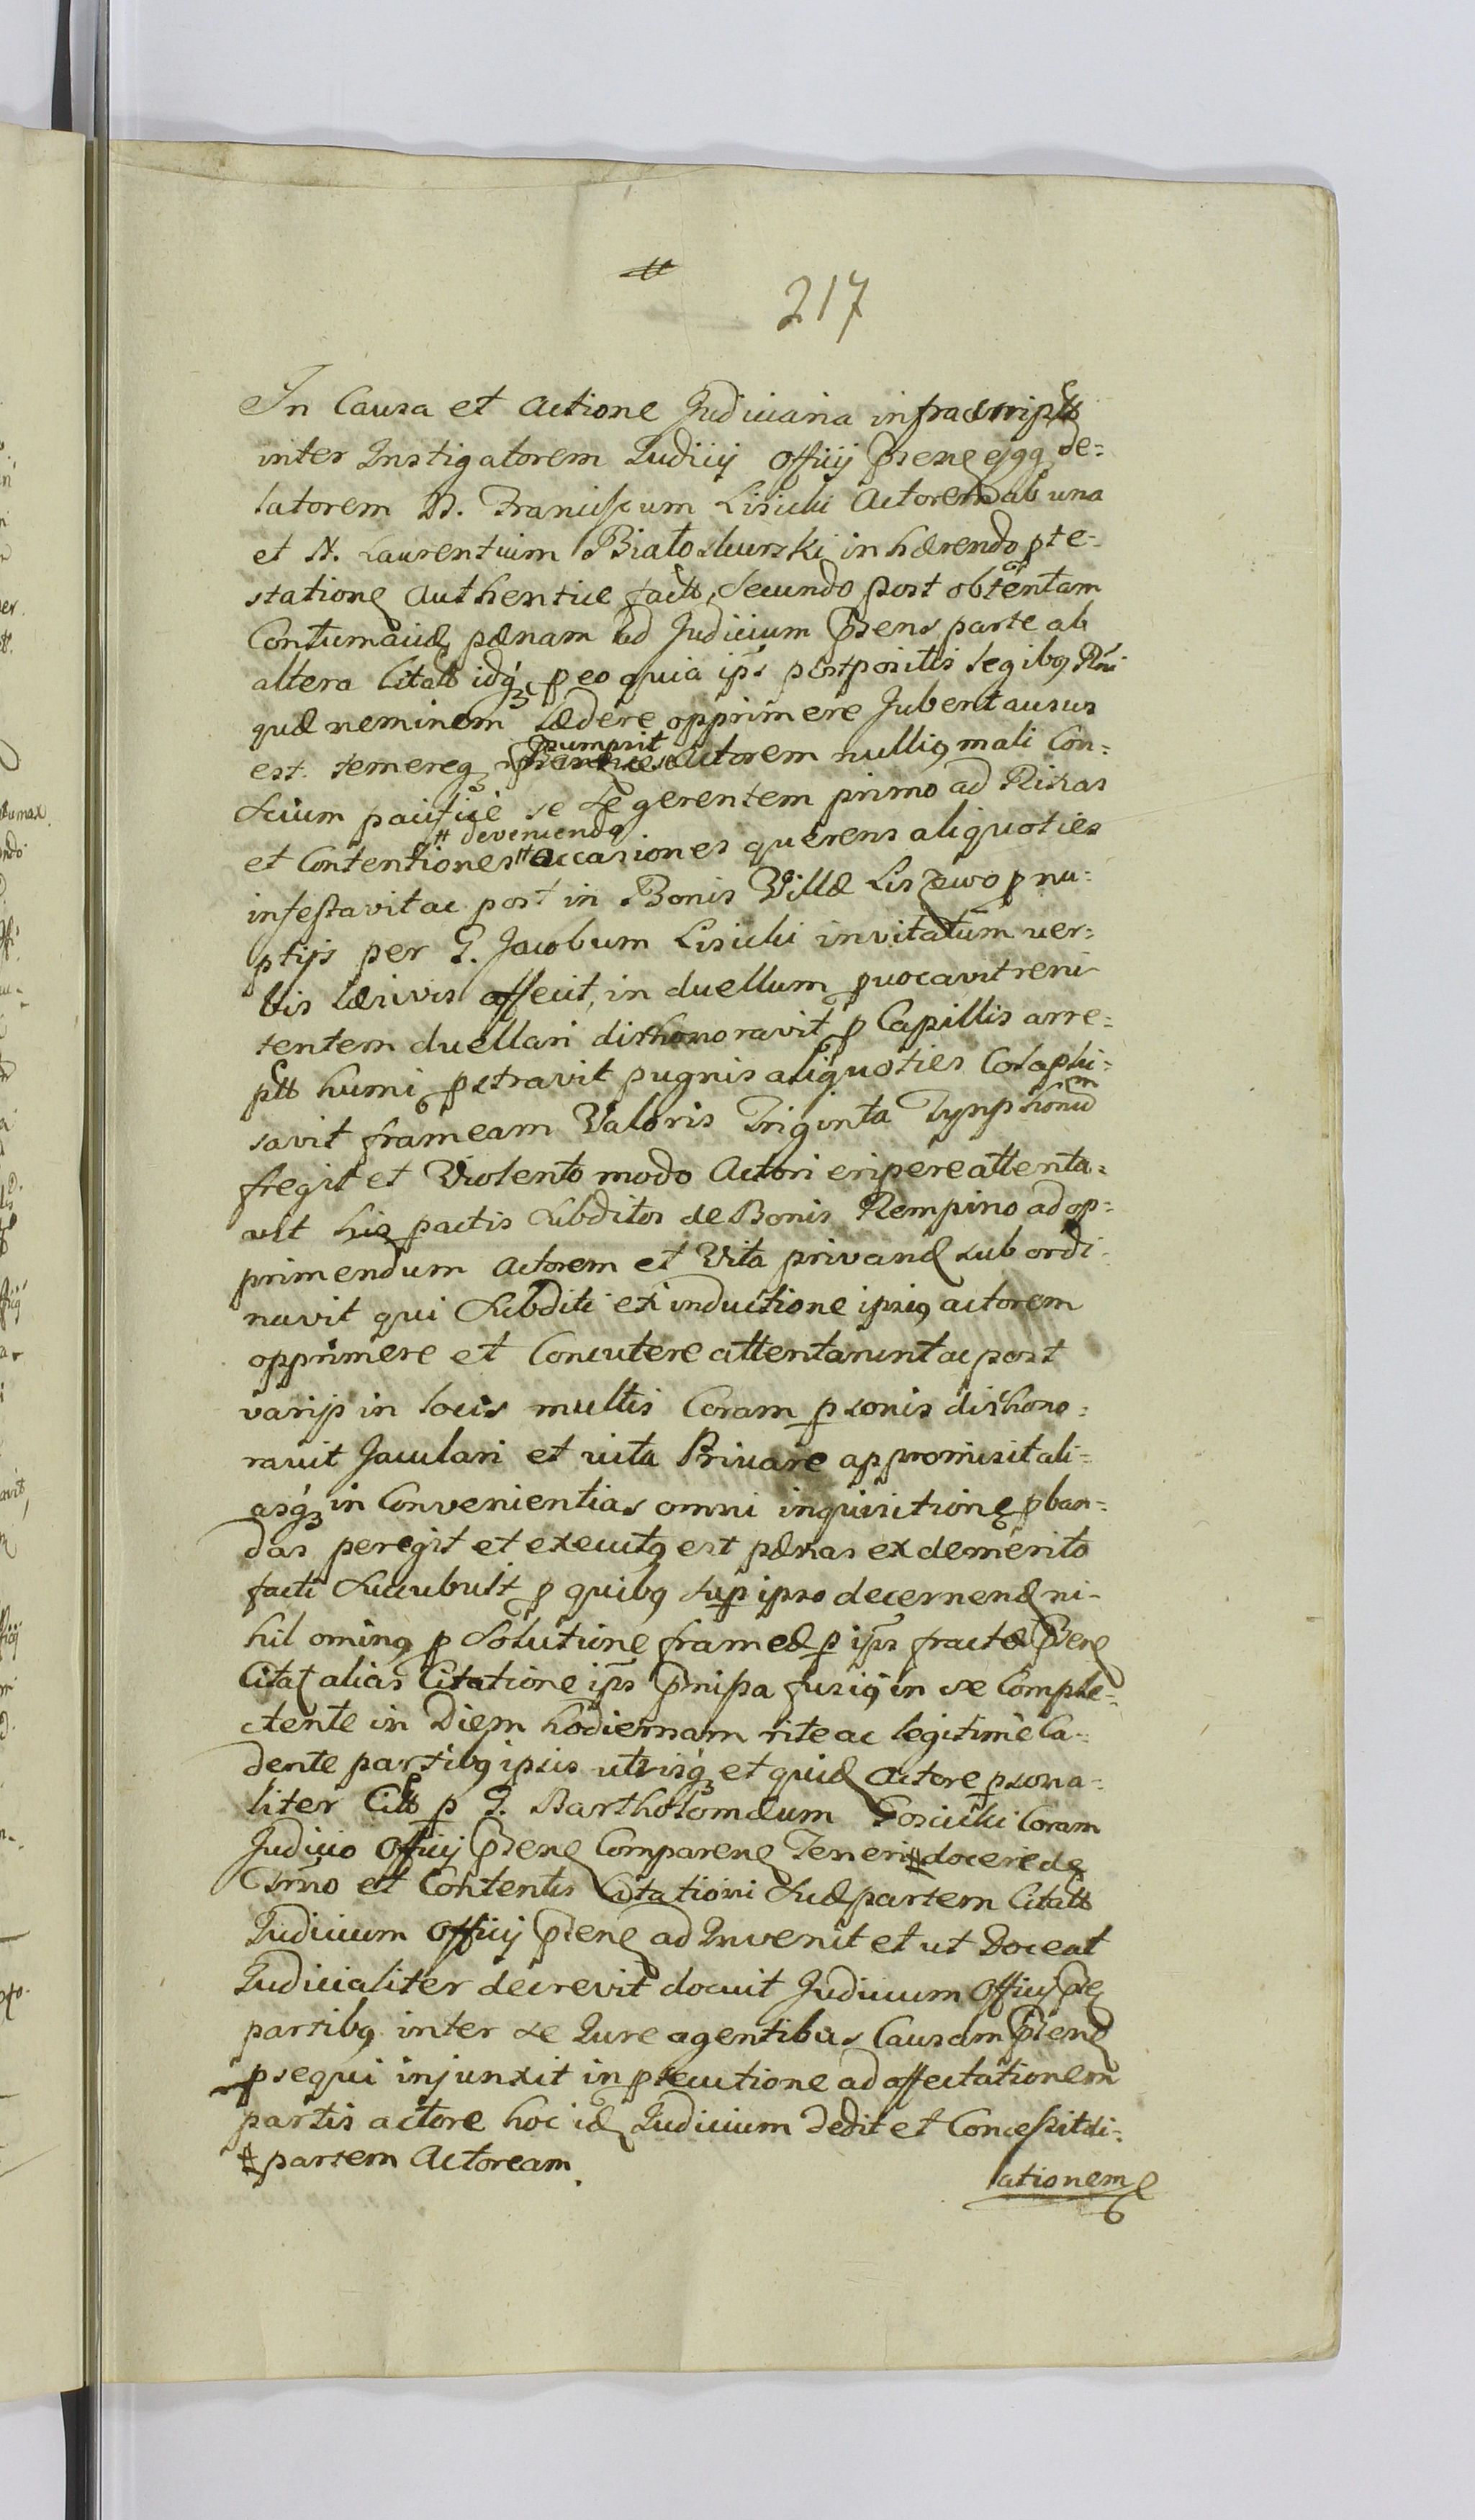 217
In Causa et Actione Judiciaria infrascriptt
inter Instigatorem Judicij Officij pseñ ejqq de=
latorem N. Franciscum Lisicki Actorem ab una
et N. Laurentium Białoskurski inhærendo pte=
statione authentice factt, Secundo post obtentam
Contumaciæ pænam ad Judicium psens parte ab
altera Citatt idq, p eo quia ips postpositis legibq Rni
quæ neminem lædere opprimere Jubent ausus
est temereq sumpsit Actorem nulliq mali Con=
scium pacifice se gerentem primo ad Rixas
et Contentiones # deveniendo # occasiones querens aliquoties
infestavit ac post in Bonis Villæ Liszewo p nu=
ptijs per G. Jacobum Lisicki invitatum ver=
bis læsivis affecit, in duellum pvocavit reni
tentem duellari dishonoravit p Capillis arre=
ptt humi pstravit pugnis aliquoties Colaphi=
savit frameam Valoris Triginta Tynphonum
fregit et Violento modo Actori eripere attenta=
vit his pactis subditos de Bonis Rempino ad op=
primendum Actorem et Vita privand subordi
navit qui Subditi ex inductione ipsiq actorem
opprimere et Concutere attentarunt ac post
varijs in locis multis Coram psonis dishono=
ravit Jaculari et vita Privare appromisit ali=
asq in Convenientias omni inquisitione pban=
das peregit et executq est pænas ex demerito
facti Succubuit p quibq sup ipso decernend ni-
hil ominq p Solutione frameæ p ips fractæ pseñ
Citat alias Citatione ips pmissa fusiq in se Comple=
ctente in Diem hodiernam rite ac legitime Ca=
dente partibq ipsis utrisq et quid Actore psona=
liter Citt p G. Bartholomæum Gosicki Coram
Judicio Officij pseñ Compareñ Teneri # docere de
Termo et Contentis Citationi Suæ partem Citatt
Judicium Officij pseñ ad Invenit et ut Doceat
Judicialiter decrevit docuit Judicium Officij pse
partibq inter se Jure agentibus Causam pseñ
psequi injunxit in psecutione ad affectationem
partis actore hoc id Judicium Dedit et Concessit di=
# partem Actoream.
lationem